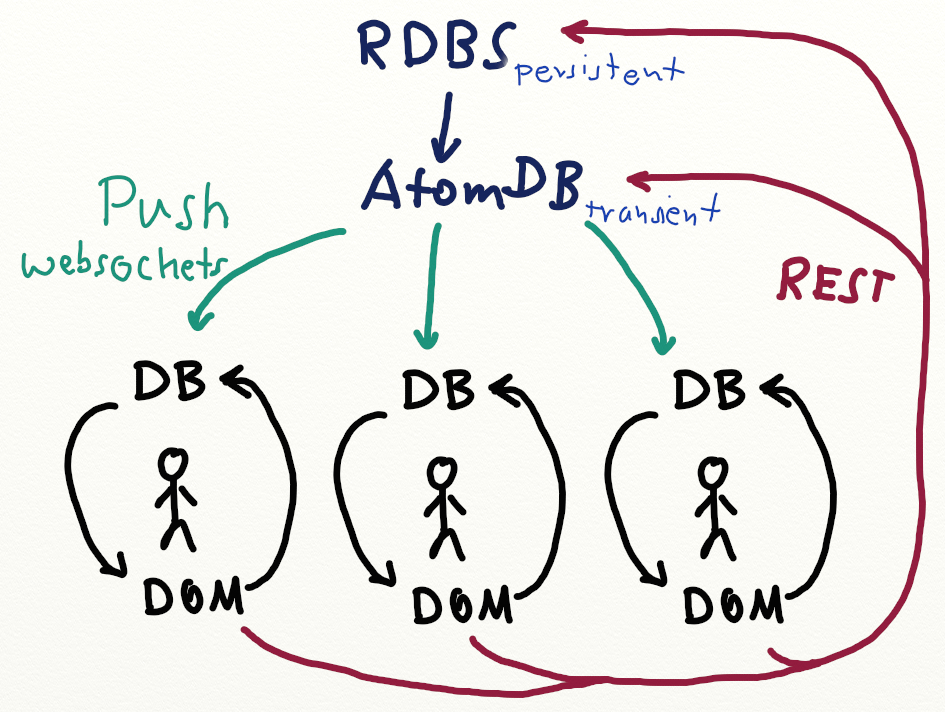 RDBS
persistent
AtomDB
transient
Push
websockets
REST
DB
DB
DB
DOM
DOM
DOM